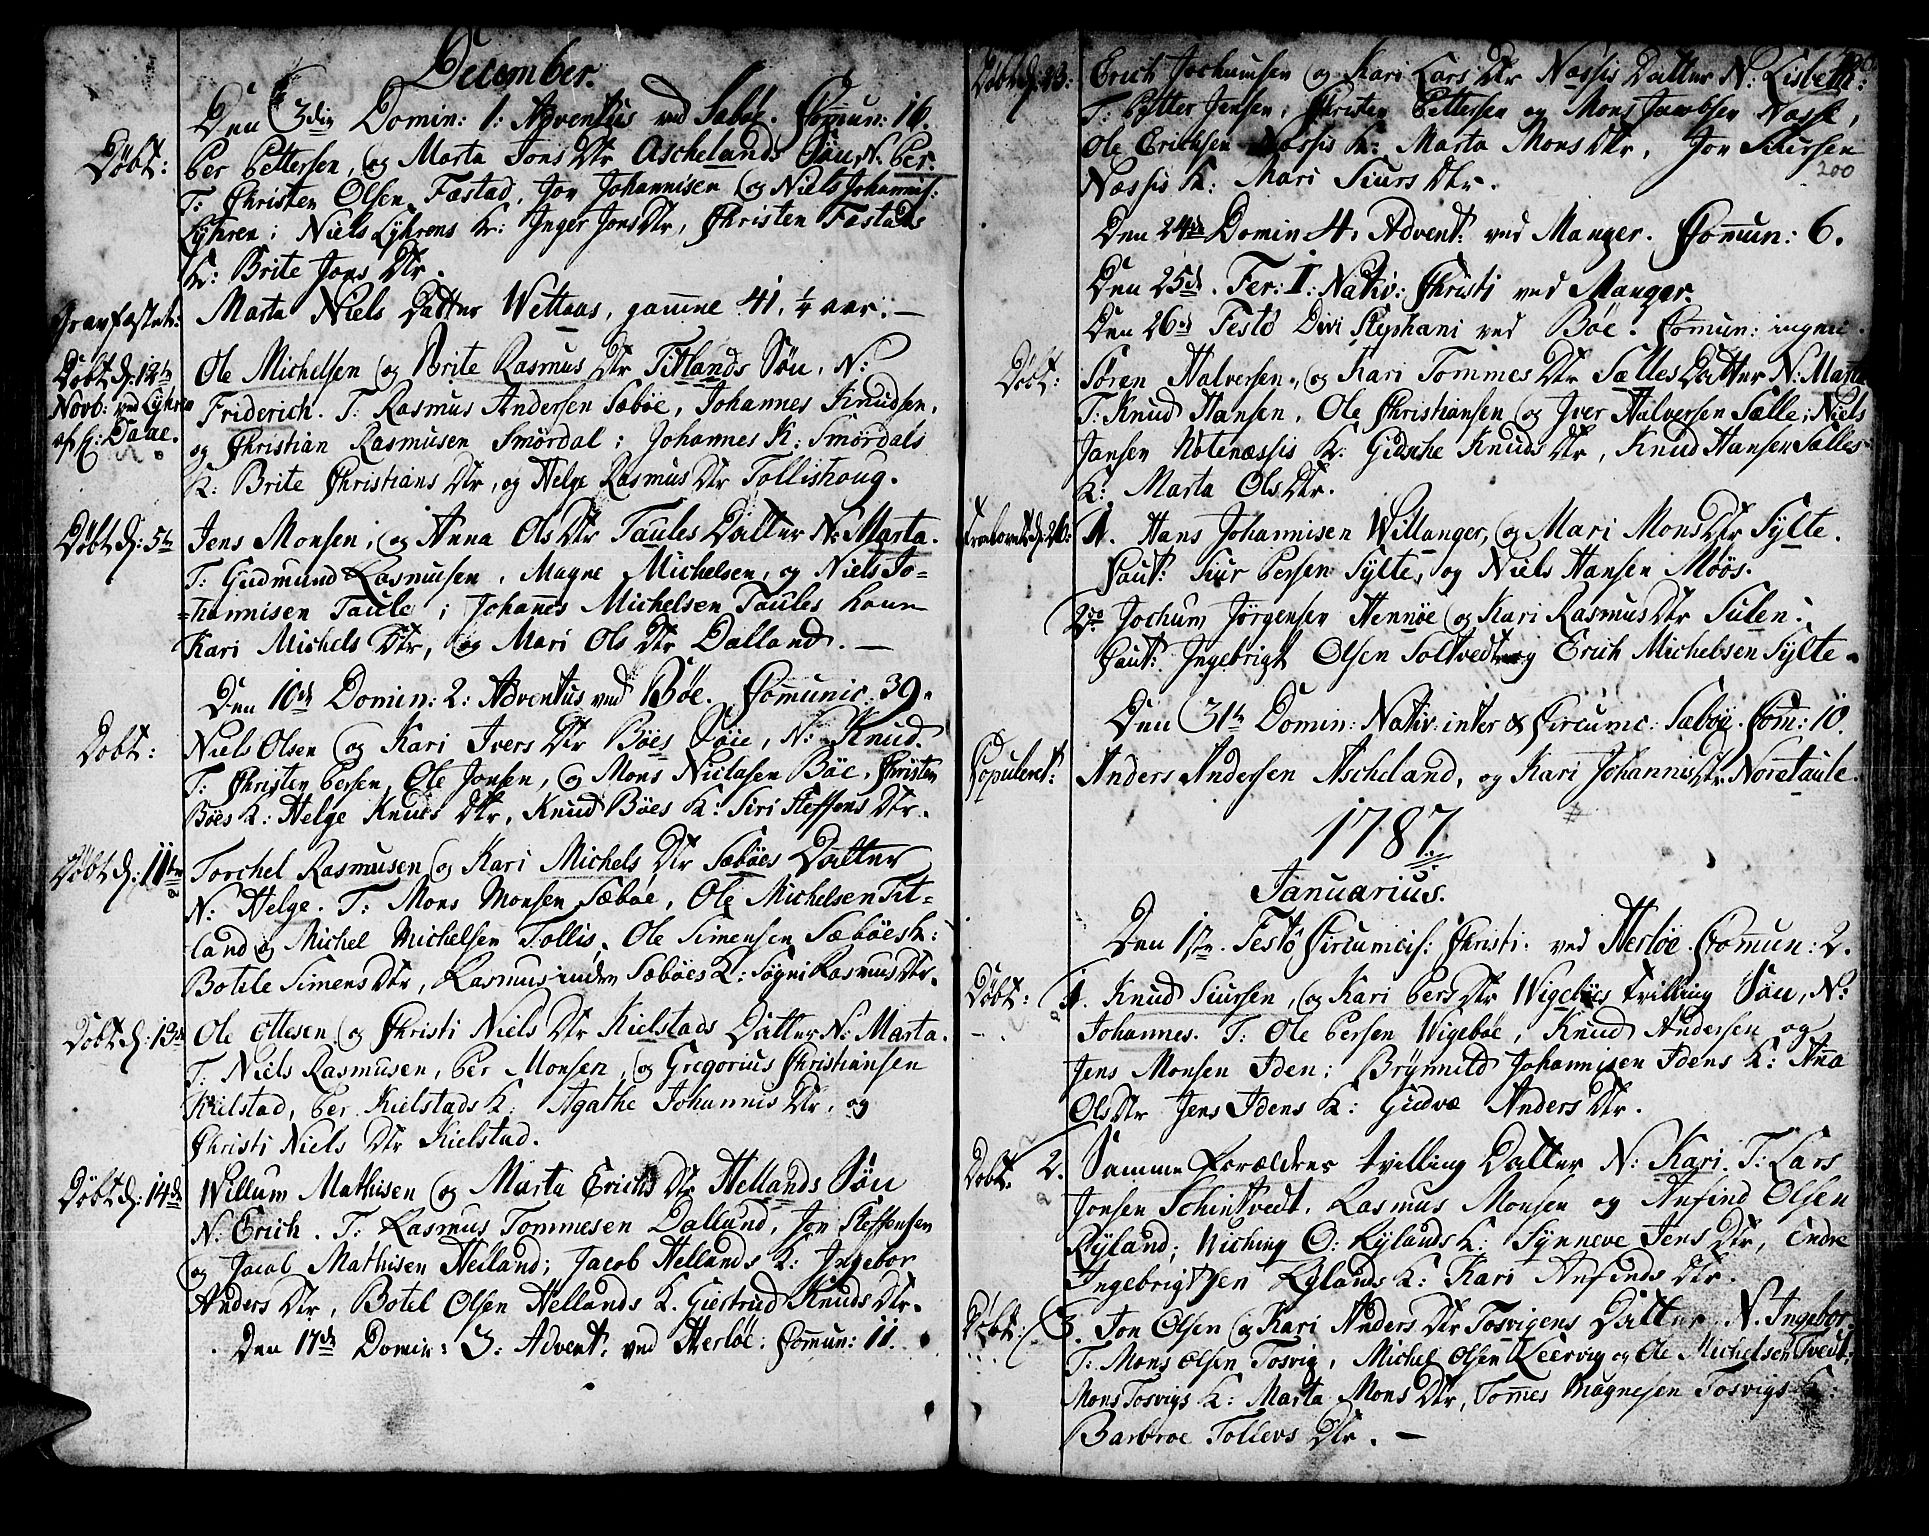 December.
Den 3die Domin: 1. Adventus ved Sæbøe. Comun: 16.
Døbt: Per Pettersen, og Marta Jons Dtr Aschelands Søn, N: Per.
T: Christen Olsen Fæstad, Jon Johannisen og Niels Johannis:
Lyhren; Niels Lyhrens K: Inger Jons Dtr, Christen Fæstads
K: Brite Jons Dtr.
Gravfæstet: Marta Niels Datter Wettaas, gamme 41 1/4 aar. —
Døbt d: 12te Novb: ved Lyhren af H: Daae. Ole Michelsen og Brite Rasmus Dtr Titlands Søn, N:
Friderich. T: Rasmus Andersen Sæbøe, Johannes Knudsen,
og Christian Rasmusen Smørdal; Johannes K. Smørdals
K: Brite Christians Dtr, og Helge Rasmus Dtr Tollishoug.
Døbt d: 5te Jens Monsen, og Anna Ols Dtr Taules Datter N: Marta.
T: Gudmund Rasmusen, Magne Michelsen, og Niels Jo=
=hannisen Taule; Johannes Michelsen Taules Kone
Kari Michels Dtr, og Mari Ols Dtr Dalland. —
Den 10de Domin: 2: Adventus ved Bøe. Comunic. 39.
Døbt: Niels Olsen og Kari Ivers Dtr Bøes Søn, N: Knud.
T: Christen Persen, Ole Jonsen, og Mons Nielsen Bøe, Christen
Bøes K: Helge Knuds Dtr, Knud Bøes K: Siri Steffens Dtr.
Døbt d: 11te Torchel Rasmusen og Kari Michels Dtr Sæbøes Datter
N: Helge. T: Mons Monsen Sæbøe, Ole Michelsen Tit=
land og Michel Michelsen Tollis, Ole Simensen Sæbøes K:
Botile Simens Dtr, Rasmus indre Sæbøes K: Søgni Rasmus Dtr.
Døbt d: 13de Ole Ottesen og Christi Niels Dtr Kielstads Datter N: Marta.
T: Niels Rasmusen, Per Monsen, og Gregorius Christiansen
Kielstad, Per Kielstads K: Agathe Johannis Dtr, og
Christi Niels Dtr Kielstad.
Døbt d: 14de Willum Mathisen og Marta Erichs Dtr Hellands Søn
N: Erich. T: Rasmus Tommesen Dalland, Jon Steffensen
og Jacob Mathisen Helland; Jacob Hellands K: Ingebor
Anders Dtr, Botel Olsen Hellands K. Giertrud Knuds Dtr.
Den 17de Domin: 3. Advent: ved Herløe. Comun: 11.
Døbt d: 13: Erich Jochumsen og Kari Lars Dtr Næssis Datter N: Lisbeth.
T: Petter Jensen, Christen Pettersen og Mons Jacobsen Næsse,
Ole Erichsen Næssis K: Marta Mons Dtr, Jon Siursen
200
Næssis K: Mari Siurs Dtr.
Den 24de Domin 4. Advent: ved Manger. Comun: 6.
Den 25de. Fer: I: Nativ: Christi ved Manger.
Den 26de Festo Divi Stephani ved Bøe. Comun: ingen.
Døbt: Søren Halversen, og Kari Tommes Dtr Sælles Datter N: Marta
T: Knud Hansen, Ole Christiansen og Iver Halversen Sælle; Niels
Jansen Notenæssis K: Gidsche Knuds Dtr, Knud Hansen Sælles
K: Marta Ols Dtr.
Troelovet d: 26: 1. Hans Johannisen Willanger, og Mari Mons Dtr Sylte.
Caut: Siur Persen Sylte, og Niels Hansen Møøs.
2do Jochum Jørgensen Hennøe og Kari Rasmus Dtr Sulen.
Caut: Ingebrigt Olsen Soltvedt og Erich Michelsen Sylte.
Den 31te Domin: Nativ: inter & Circumc: Sæbøe. Com: 10.
Copuleret: Anders Andersen Ascheland, og Kari Johannis Dtr Noretaule.
1787.
Januarius.
Den 1ste. Festo Circumcis: Christi. ved Herløe. Comun: 2.
Døbt: 1. Knud Siursen, og Kari Pers Dtr Wigebøes tvilling Søn, N:
Johannes. T: Ole Persen Wigebøe, Knud Andersen og
Jens Monsen Iden; Brynnild Johannisen Idens K: Anna
Ols Dtr Jens Idens K: Gudvæ Anders Dtr.
Døbt. 2. Samme Forældres tvilling Datter N: Kari. T: Lars
Jonsen Schintvedt, Rasmus Monsen og Anfind Olsen
Ryland; Wiching O: Rylands K: Synneve Jens Dtr, Endre
Ingebrigtsen Rylands K: Kari Anfinds Dtr.
Døbt: 3. Jon Olsen og Kari Anders Dtr Tosvigens Datter N. Ingebor.
T: Mons Olsen Tosvig, Michel Olsen Keervig og Ole Michelsen Tvedt;
Mons Tosvigs K: Marta Mons Dtr, Tommes Magnesen Tosvigs K:
Barbroe Tollevs Dtr. —